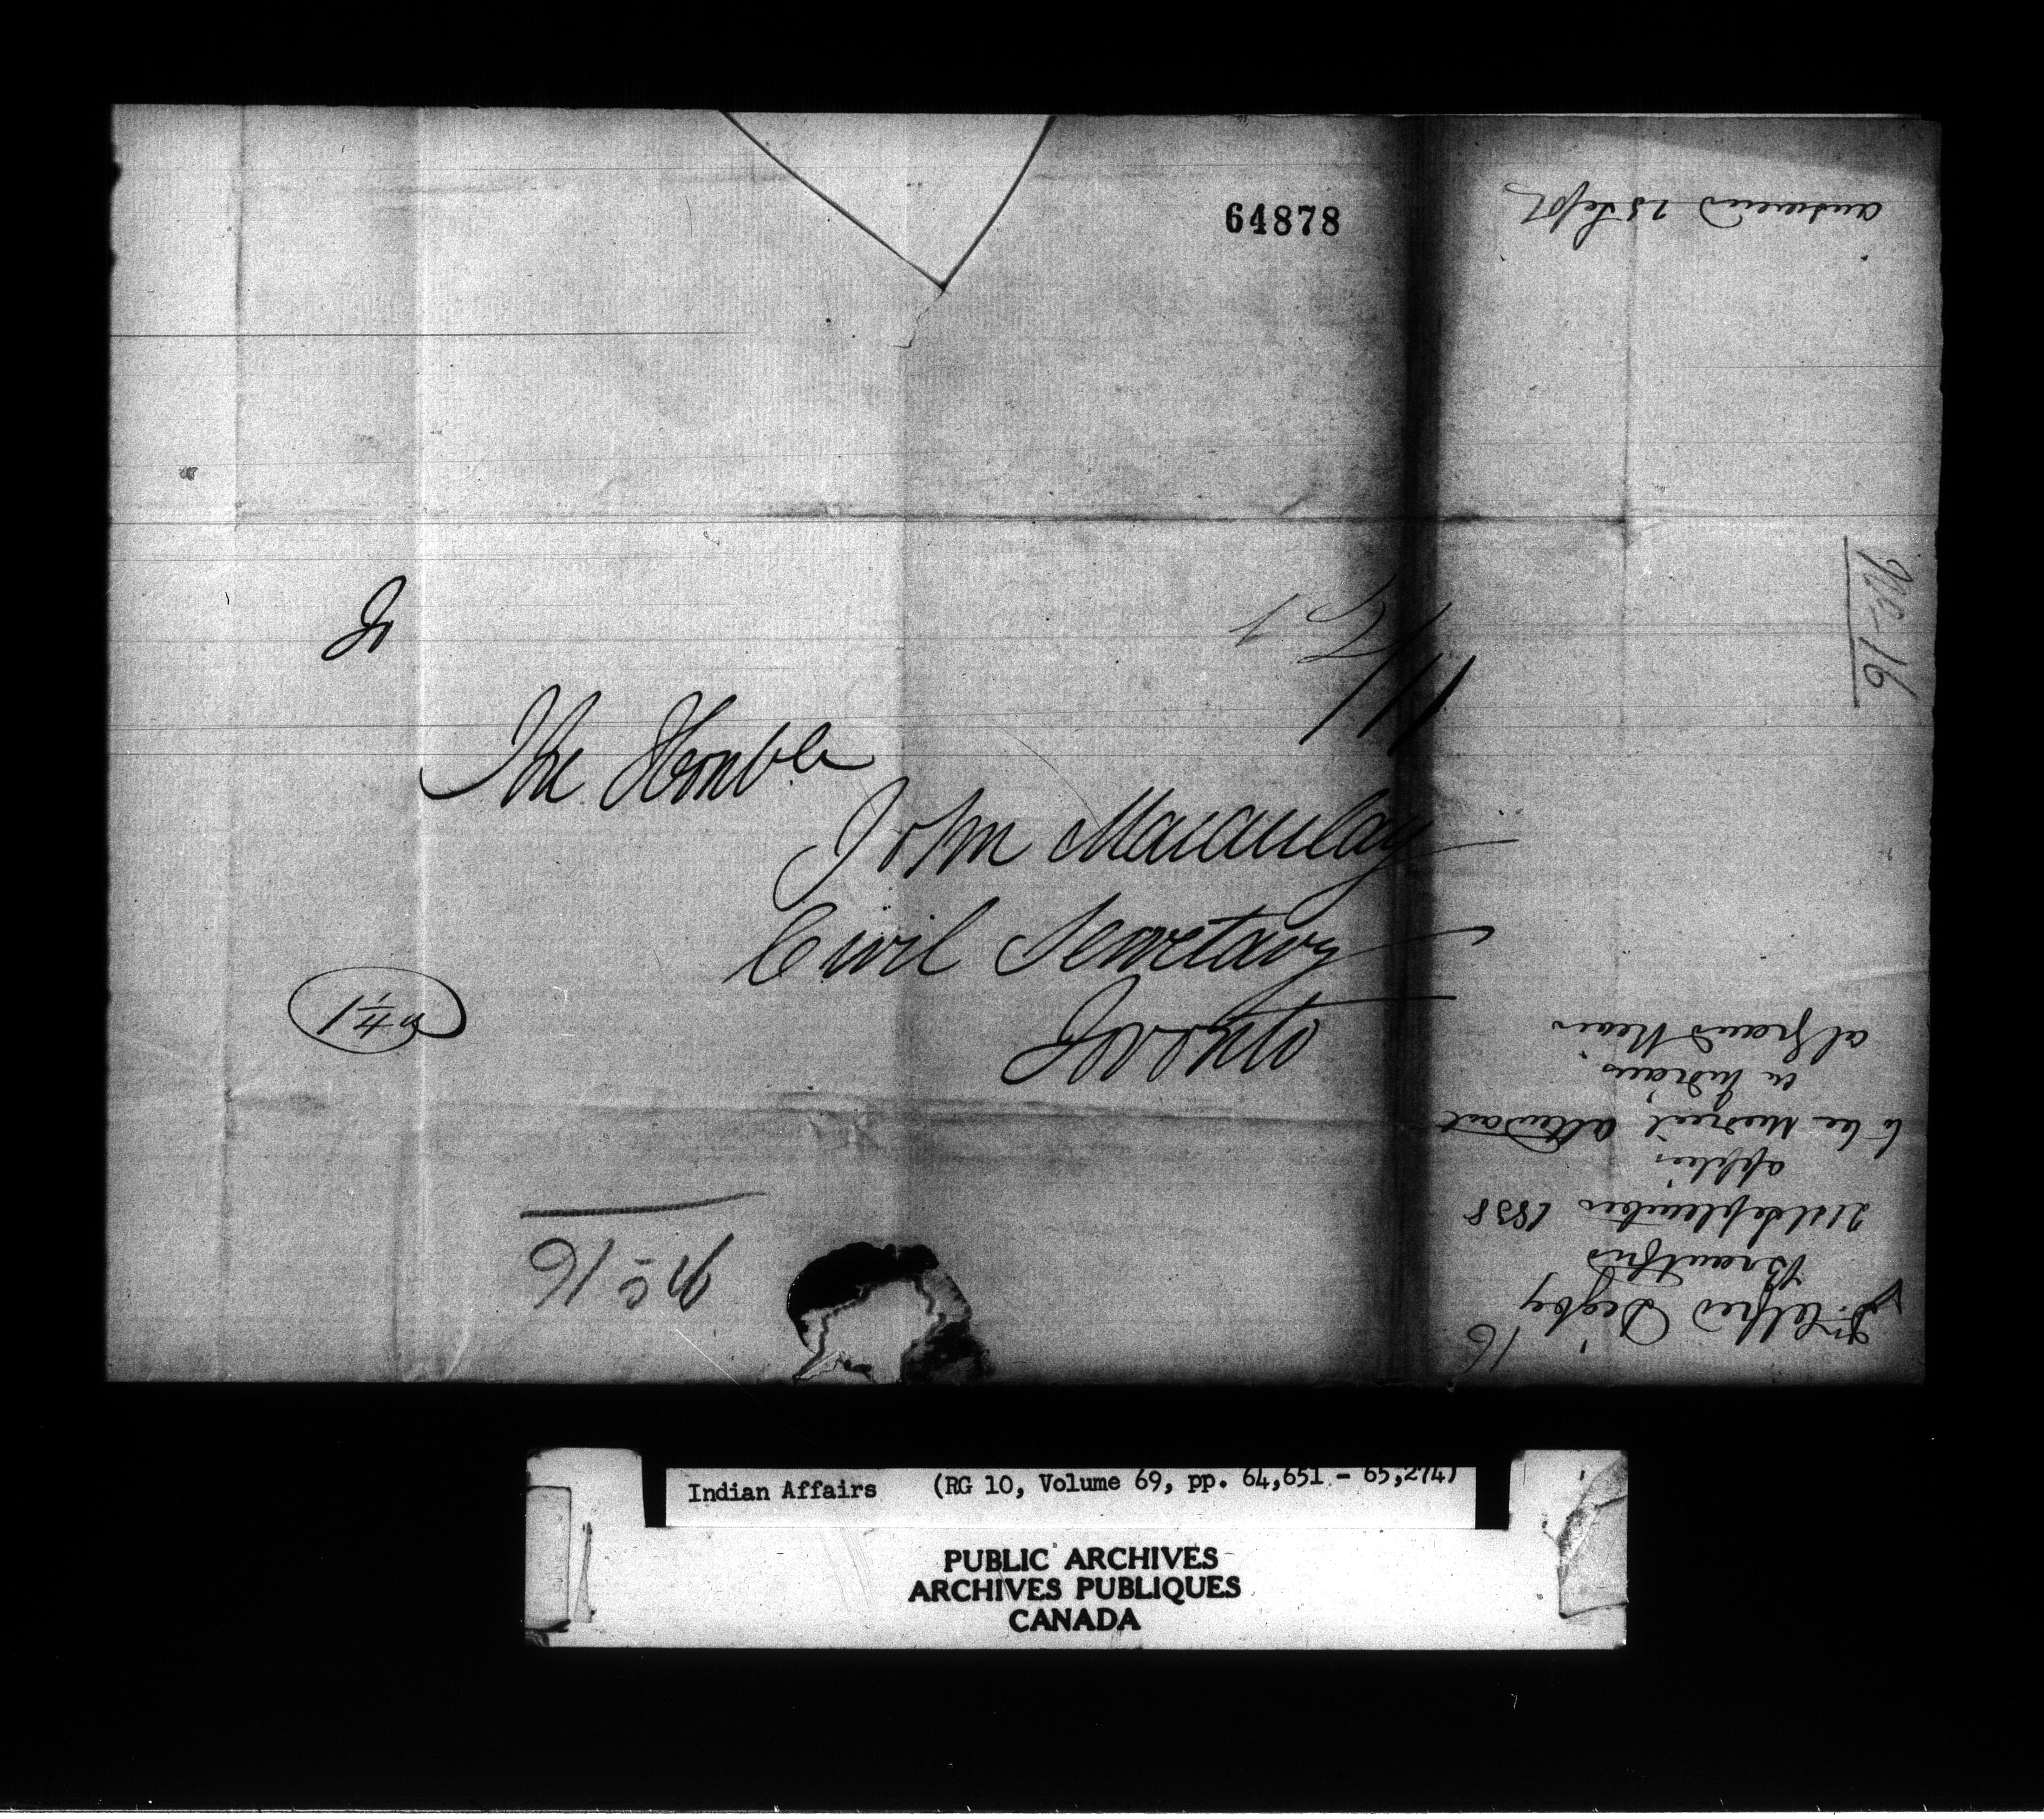 64878
To
The Honble
John Macaulay
Civil Secretary
Toronto
No 16
No 16
16
Dr. Alfred Digby
Brantford
21st September 1838
applies
to be Medical attendant
on Indians
at Grand River
answered 25 Sept
Indian Affairs (RG 10, Volume 69, pp. 64,651 - 65,274)
PUBLIC ARCHIVES
ARCHIVES PUBLIQUES
CANADA